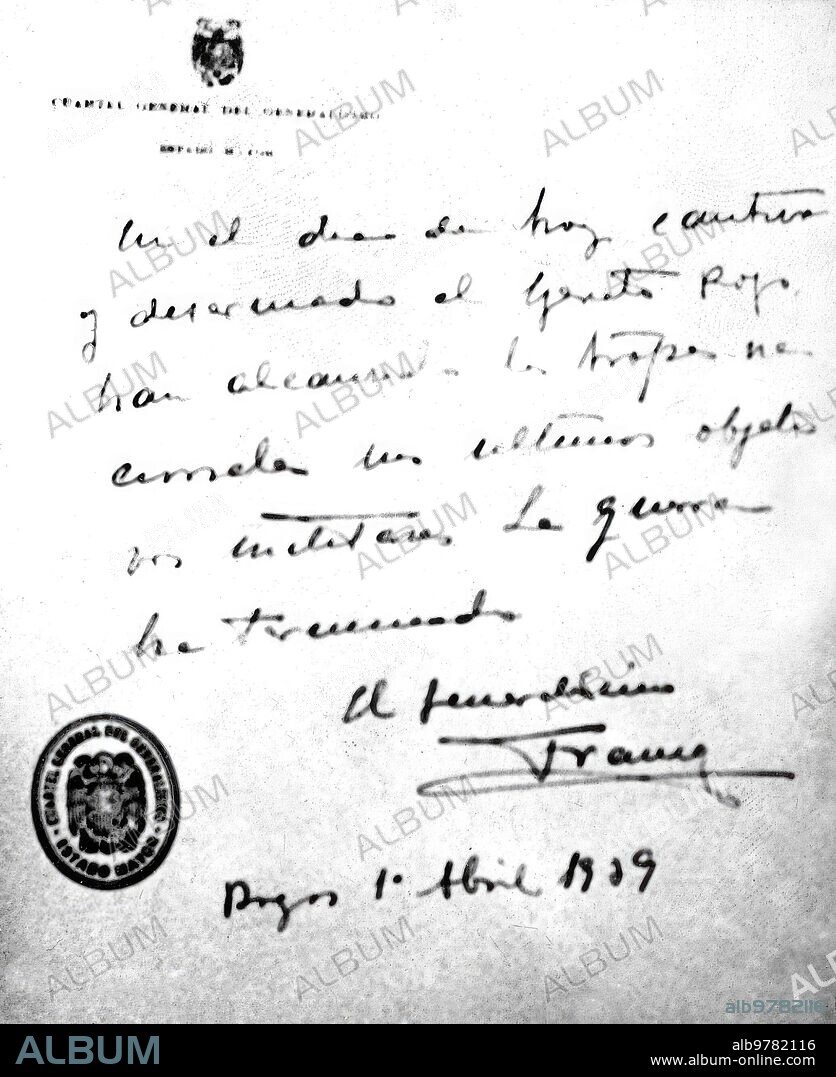 CUARTEL GENERAL DEL GENERALISIMO
ESTADO MAYOR
En el dia de hoy cautivo
y desarmado el Ejercito Rojo,
han alcanzado las tropas na-
cionales sus ultimos objeti-
vos militares. La guerra
ha terminado
El Generalisimo
Franco
Burgos 1º Abril 1939
CUARTEL GENERAL DEL GENERALISIMO
· ESTADO MAYOR ·
ALBUM
alb9782116
ALBUM
alb9782116
www.album-online.com